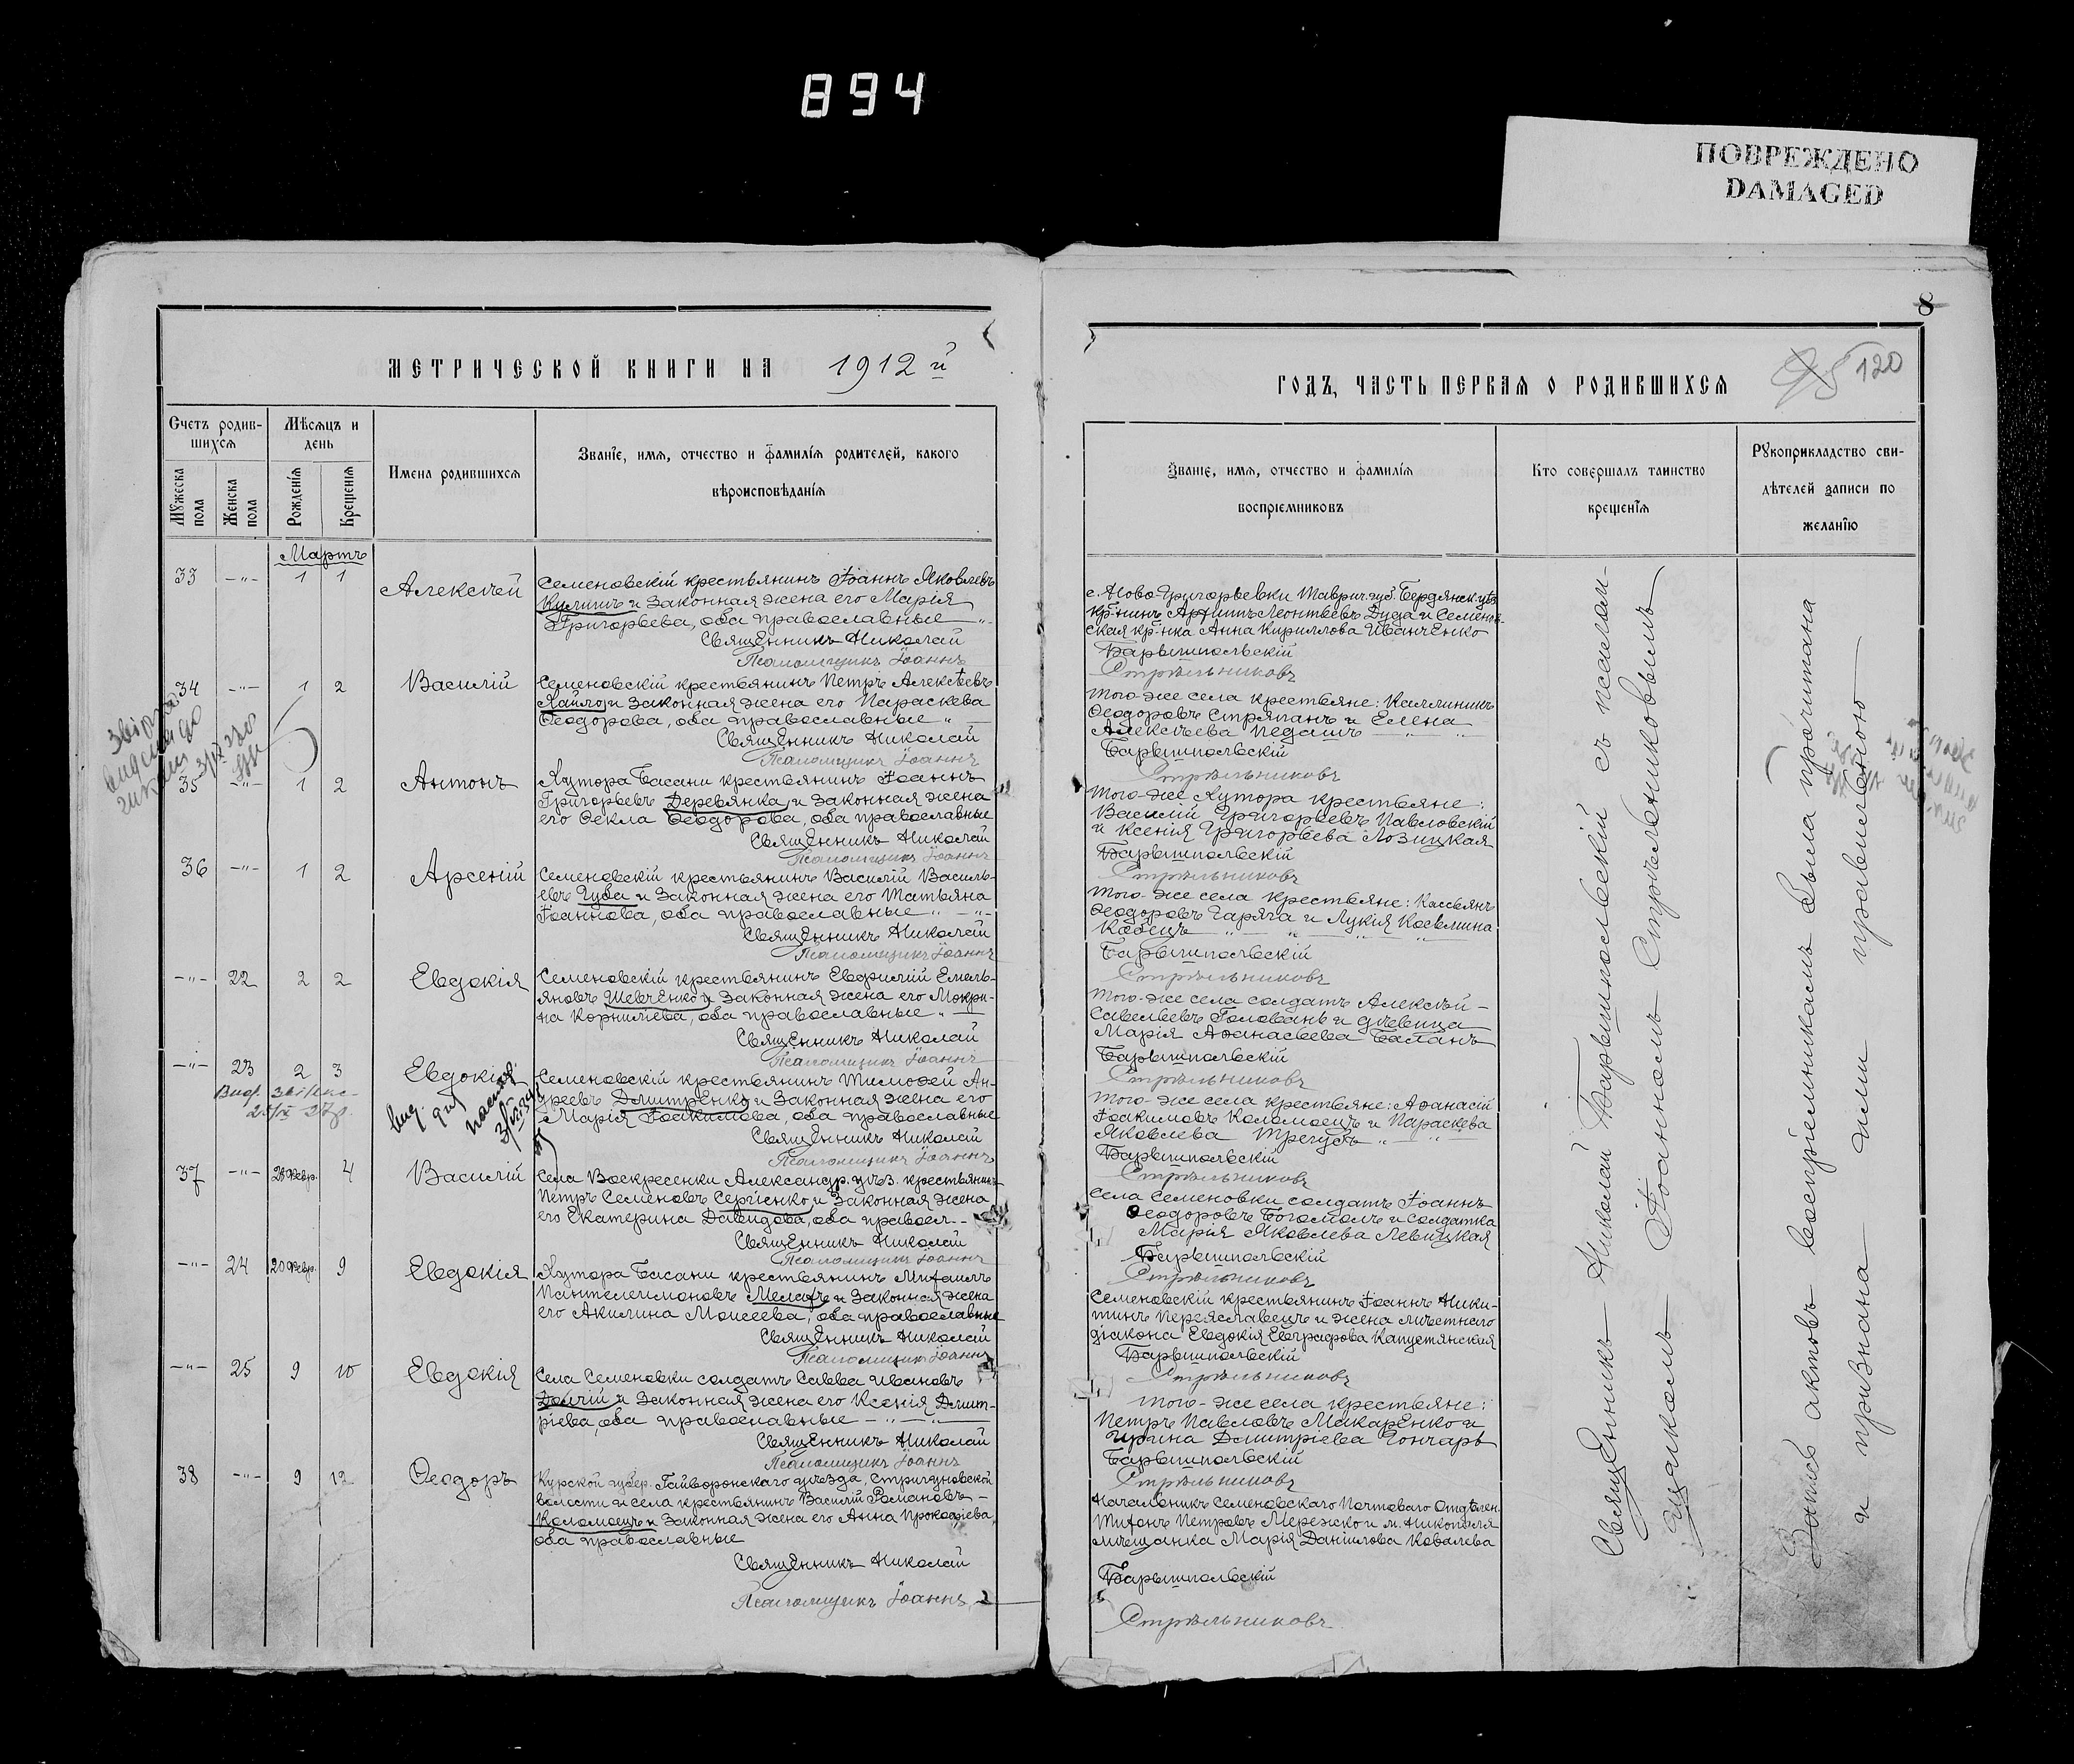 894
ПОВРЕЖДЕНО
DAMAGED
8
МЕТРИЧЕСКОЙ КНИГИ НА 1912 й
Счетъ родив-
шихся
Мѣсяцъ и
день
Имена родившихся
Званіе, имя, отчество и фамилія родителей, какого
вѣроисповѣданія
Мужеска
пола
Женска
пола
Рожденія
Крещенія
Мартъ
33 —"— 1 1
Алексѣй
Семеновскій крестьянинъ Іоаннъ Яковлевъ
Кулишъ и законная жена его Марія
Григорьева, оба православные
Священникъ Николай
Псаломщикъ Іоаннъ
34 —"— 1 2
Василій
Семеновскій крестьянинъ Петръ Алексѣевъ
и законная жена его Параскева
Ѳеодорова, оба православные
Священникъ Николай
Псаломщикъ Іоаннъ
35 —"— 1 2
Антонъ
Хутора Басани крестьянинъ Іоаннъ
Григорьевъ Деревянка и законная жена
его Ѳекла Ѳеодорова, оба православные
Священникъ Николай
Псаломщикъ Іоаннъ
36 —"— 1 2
Арсеній
Семеновскій крестьянинъ Василій Василь-
евъ Губа и законная жена его Татьяна
Іоаннова, оба православные
Священникъ Николай
Псаломщикъ Іоаннъ
—"— 22 2 2
Евдокія
Семеновскій крестьянинъ Евфимій Емель-
яновъ Шевченко и законная жена его Мокри-
на Корниліева, оба православные
Священникъ Николай
Псаломщикъ Іоаннъ
—"— 23 2 3
Евдокія
Семеновскій крестьянинъ Тимоѳей Ан-
дреевъ Дмитренко и законная жена его
Марія Іоакимова, оба православные
Священникъ Николай
Псаломщикъ Іоаннъ
37 —"— 28 Февр. 4
Василій
Села Воскресенки Александр. уѣз. крестьянинъ
Петръ Семеновъ Сергіенко и законная жена
его Екатерина Давидова, оба правосл.
Священникъ Николай
Псаломщикъ Іоаннъ
—"— 24 20 Февр. 9
Евдокія
Хутора Басани крестьянинъ Михаилъ
Пантелеимоновъ и законная жена
его Акилина Моисеева, оба православные
Священникъ Николай
Псаломщикъ Іоаннъ
—"— 25 9 10
Евдокія
Села Семеновки солдатъ Савва Ивановъ
Долгій и законная жена его Ксенія Дмит-
ріева, оба православные
Священникъ Николай
Псаломщикъ Іоаннъ
38 —"— 9 12
Ѳеодоръ
Курской губер. Гайворонскаго уѣзда, Стригуновской
волости и села крестьянинъ Василій Романовъ
Коломоецъ и законная жена его Анна Прокофіева,
оба православные
Священникъ Николай
Псаломщикъ Іоаннъ
ГОДЪ, ЧАСТЬ ПЕРВАЯ О РОДИВШИХСЯ
95 120
Званіе, имя, отчество и фамилія
воспріемниковъ
Кто совершалъ таинство
крещенія
Рукоприкладство сви-
дѣтелей записи по
желанію
с. Ново Григорьевки Таврич. губ. Бердянск. уѣз.
кр-нинъ Леонтьевъ Дуда и Семенов-
ская кр-нка Анна Кириллова Иванченко
Барышпольскій
Стрѣльниковъ
того-же села крестьяне: Каллиникъ
Ѳеодоровъ Стряпанъ и Елена
Алексѣева Педашъ
Барышпольскій
Стрѣльниковъ
того-же хутора крестьяне:
Василій Григорьевъ Павловскій
и Ксенія Григорьева Лозицкая
Барышпольскій
Стрѣльниковъ
того-же села крестьяне: Кассьянъ
Ѳеодоровъ Гаряга и Лукія
Кобецъ
Барышпольскій
Стрѣльниковъ
того-же села солдатъ Алексѣй
Савельевъ Головань и дѣвица
Марія Аѳанасьева Баланъ
Барышпольскій
Стрѣльниковъ
того-же села крестьяне: Аѳанасій
Іоакимовъ Коломоецъ и Параскева
Яковлева Трегубъ
Барышпольскій
Стрѣльниковъ
Села Семеновки солдатъ Іоаннъ
Ѳеодоровъ Богомолъ и солдатка
Марія Яковлева Левицкая
Барышпольскій
Стрѣльниковъ
Семеновскій крестьянинъ Іоаннъ Ники-
тинъ Переяславецъ и жена мѣстнаго
діакона Евдокія Евграфова Капустянская
Барышпольскій
Стрѣльниковъ
того-же села крестьяне:
Петръ Павловъ Макаренко и
Ирина Дмитріева Гончаръ
Барышпольскій
Стрѣльниковъ
Начальникъ Семеновскаго Почтоваго Отдѣлен.
Тихонъ Петровъ Мережко и м. Никополя
мѣщанка Марія Данилова Ковалева
Барышпольскій
Стрѣльниковъ
Священникъ Николай Барышпольскій съ псалом-
щикомъ Іоанномъ Стрѣльниковымъ
Запись актовъ воспріемникамъ была прочитана
и признана ими правильною